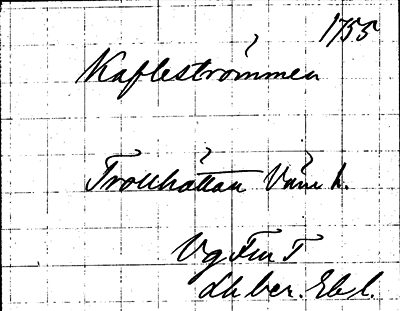 1755
Kafleströmmen
Trollhättan Väne h.
Vg Fin T
Lhber. Ebl.